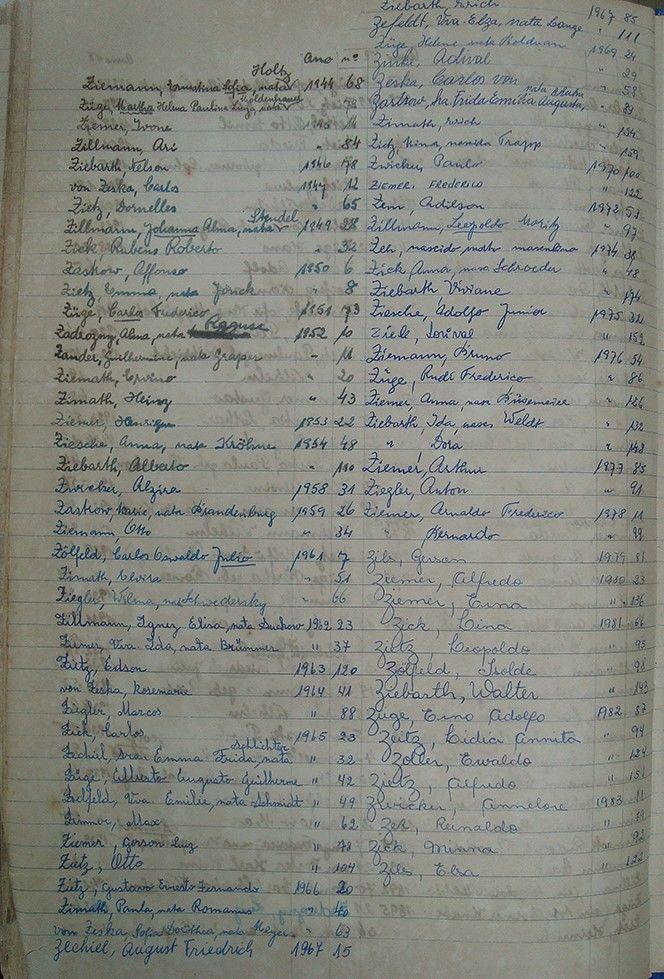 Ano nº
Holtz
Ziemann, Ernestina Sofia, nata 1944 68
Züge, Martha Helena Paulina Luiz, nata
Ziemer, Ivone " 11
Zillmann, Ari " 84
Ziebarth, Nelson 1946 78
von Zeska, Carlos 1947 12
Zietz, Dornelles " 65
Stendel
Zillmann, Johanna Alma, nata 1949 28
Zick, Rubens Roberto " 32
Zastrow, Affonso 1950 6
Zietz, Emma, nata Jonck " 8
Züge, Carlo Frederico 1951 73
Zadrozny, Alma, nata 1952 10
Zander, Guilhermine, nata Graper " 11
Zimath, Ervino " 20
Zimath, Heinz " 43
Ziemer, Henrique 1953 22
Ziesche, Anna, nata Kröhne 1954 48
Ziebarth, Alberto " 110
Zwicker, Alzira 1958 31
Zastrow, Marie, nata Brandenburg 1959 26
Ziemann, Otto " 34
Zölfeld, Carlos Oswaldo Julio 1961 7
Zimath, Elvira " 51
Ziegler, Wilma, nata Schwedersky " 66
Zillmann, Ignez Elisa, nata Suckow 1962 23
Ziemer, Vva. Ida, nata Brümmer " 37
Zietz, Edson 1963 120
von Zeska, Rosemarie 1964 41
Zügler, Marcos " 88
Zick, Carlos 1965 23
Schlichter
sra. Emma Frida, nata " 32
Züge, Alberto Augusto Guilherme " 42
Zölfeld, Vva. Emilie, nata Schmidt " 49
Zimmer, Max " 62
Ziemer, Gerson Luiz " 78
Zietz, Otto " 104
Zietz, Gustavo Ernesto Fernando 1966 20
Zimath, Paula, nata Romanus " 40
von Zeska, Sofia Dorothea, nata Meyer " 63
Zechiel, August Friedrich 1967 15
Ziebarth, Erich 1967 85
Zefeldt, Vva. Elza, nata Lange " 111
Züge, Helene nata Kolduan 1969 24
Zinke, Adival " 29
Zeska, Carlos von " 58
Zastrow, Ida Frida Emilia Augusta, " 89
Zimath, Erich " 154
Zietz, Nina, nascida Trapp " 159
Zwicker, Paulo 1970 100
ZIEMER FREDERICO " 122
Zein, Adilson 1972 57
Zillmann, Leopoldo Moritz " 97
Zeh, nascido morto masculino 1974 38
Zick Anna, nasc Schroeder " 48
Ziebarth Viviane " 174
Ziesche, Adolfo Junior 1975 32
Ziele, Lorival " 152
Ziemann, Bruno 1976 54
Züge, Rudi Frederico " 86
Ziemer, Anna, nasc " 126
Ziebarth, Ida, nasc Weldt " 132
" Dora " 148
Ziemer, Arthur 1977 85
Ziegler, Anton " 91
Ziemer, Arnaldo Frederico 1978 11
" Bernardo " 99
Zils, Gerson 1979 81
Ziemer, Alfredo 1980 23
Ziemer, Erna " 136
Zick, Lina 1981 66
Zietz, Leopoldo " 93
Zölfeld, Isolde " 98
Ziebarth, Walter " 143
Züge, Eino Adolfo 1982 87
Zeitz, Lidia Annita " 94
Zoller, Ewaldo " 124
Zietz, Alfredo " 151
Zwicker, Annelore 1983 11
Zeh, Reinaldo " 79
Zick, Minna " 92
Zils, Elsa " 122